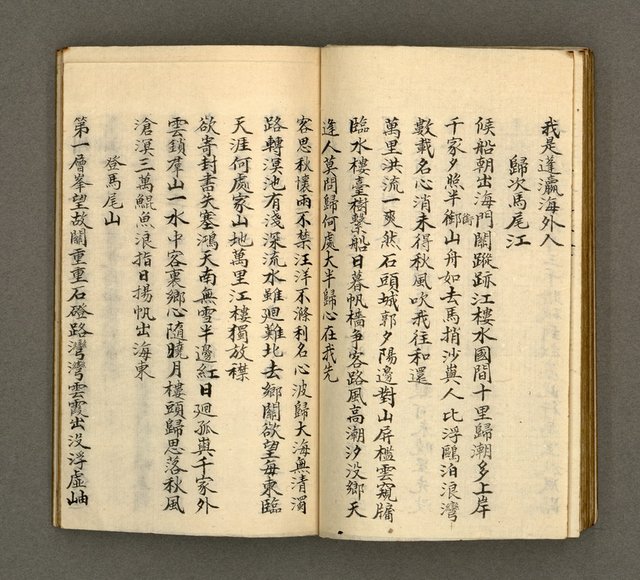 我是蓬瀛海外人
歸次馬尾江
候船朝出海門關蹤跡江樓水國間十里歸潮多上岸
千家夕照半御山舟如去馬捎沙與人比浮鷗泊浪灣
銜
數載名心消未得秋風吹我往和還
萬里洪流一爽然石頭城郭夕陽邊對山屏檻雲窺牖
臨水樓臺樹繫船日暮帆檣爭客路風高潮汐沒鄉天
逢人莫問歸何處大半歸心在我先
客思秋懷兩不禁汪洋不滌利名心波歸大海無清濁
路轉溟池有淺深流水雖迴難北去鄉關欲望每東臨
天涯何處家山地萬里江樓獨放襟
欲寄封書失塞鴻天南無雪半邊紅日迴孤與千家外
雲鎖羣山一水中客裏鄉心隨曉月樓頭歸思落秋風
滄溟三萬鯤魚浪指日揚帆出海東
登馬尾山
第一層峯望故關重重石磴路灣灣雲霞出沒浮虛岫